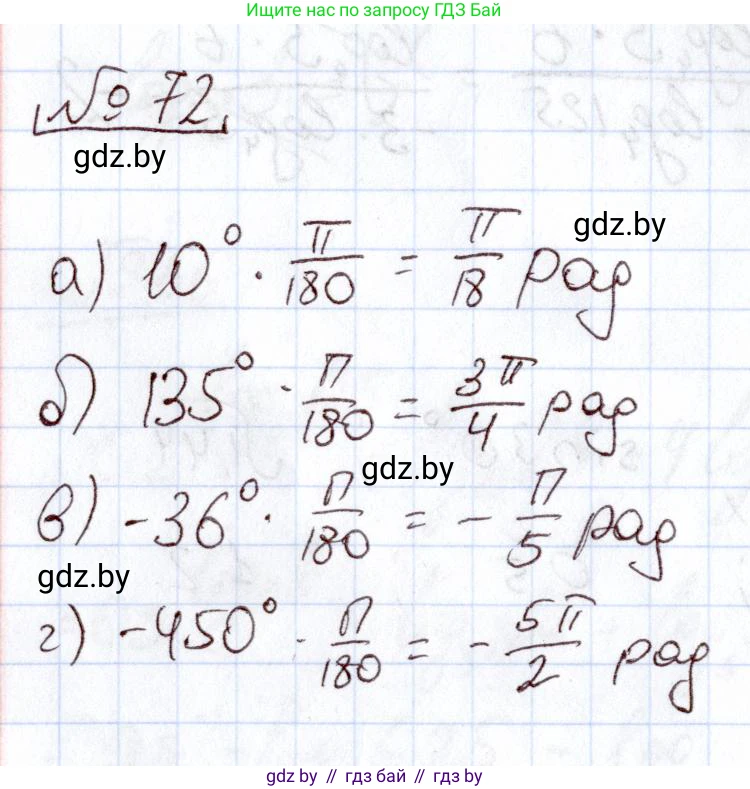 Ищите нас по запросу ГДЗ Бай
№ 72
gdz.by
gdz.by
а) 10° · π/180 = π/18 рад
б) 135° · π/180 = 3π/4 рад
gdz.by
в) -36° · π/180 = - π/5 рад
gdz.by
г) -450° · π/180 = - 5π/2 рад
gdz.by // гдз бай // гдз by